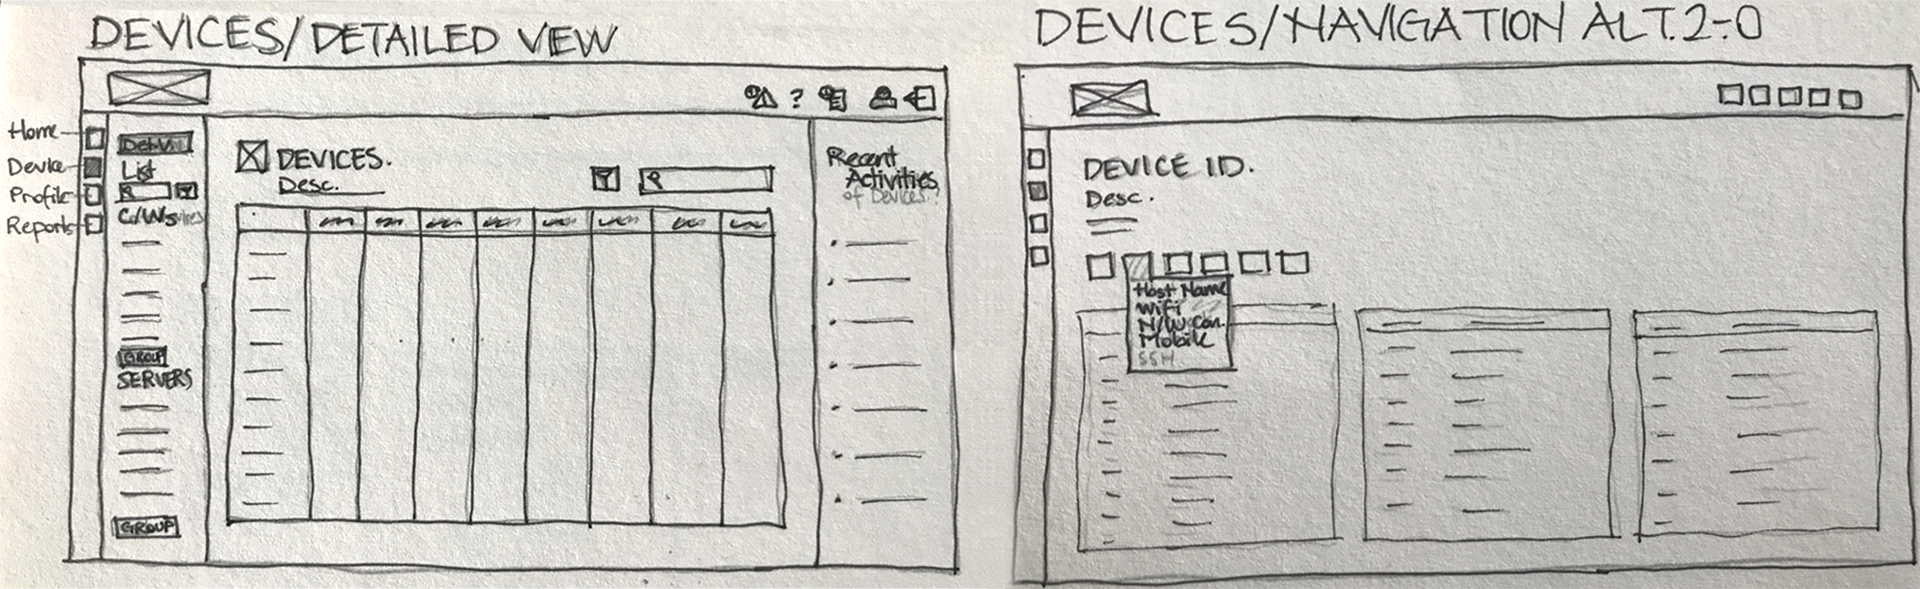 DEVICES/DETAILED VIEW
?
Home
Device
Profile
Reports
Det.Vi
List
GROUP
SERVERS
GROUP
DEVICES.
Desc.
Recent
Activities
of Devices?
DEVICES/NAVIGATION ALT.2-0
DEVICE ID.
Desc.
Host Name
Wifi
N/W Con.
Mobile
SSH